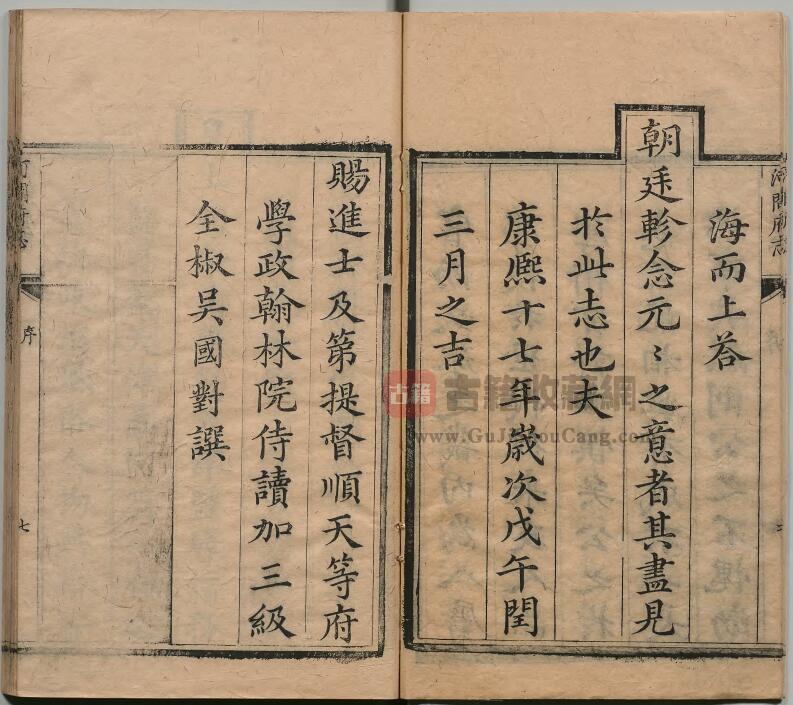 海而上荅
朝廷軫念元〻之意者其盡見
於此志也夫
康熈十七年歳次戊午閏
三月之吉
賜進士及第提督順天等府
學政翰林院侍讀加三級
全椒吳國對譔
河間府志
序
七
古籍
古籍收藏網
www.GuJiShouCang.com